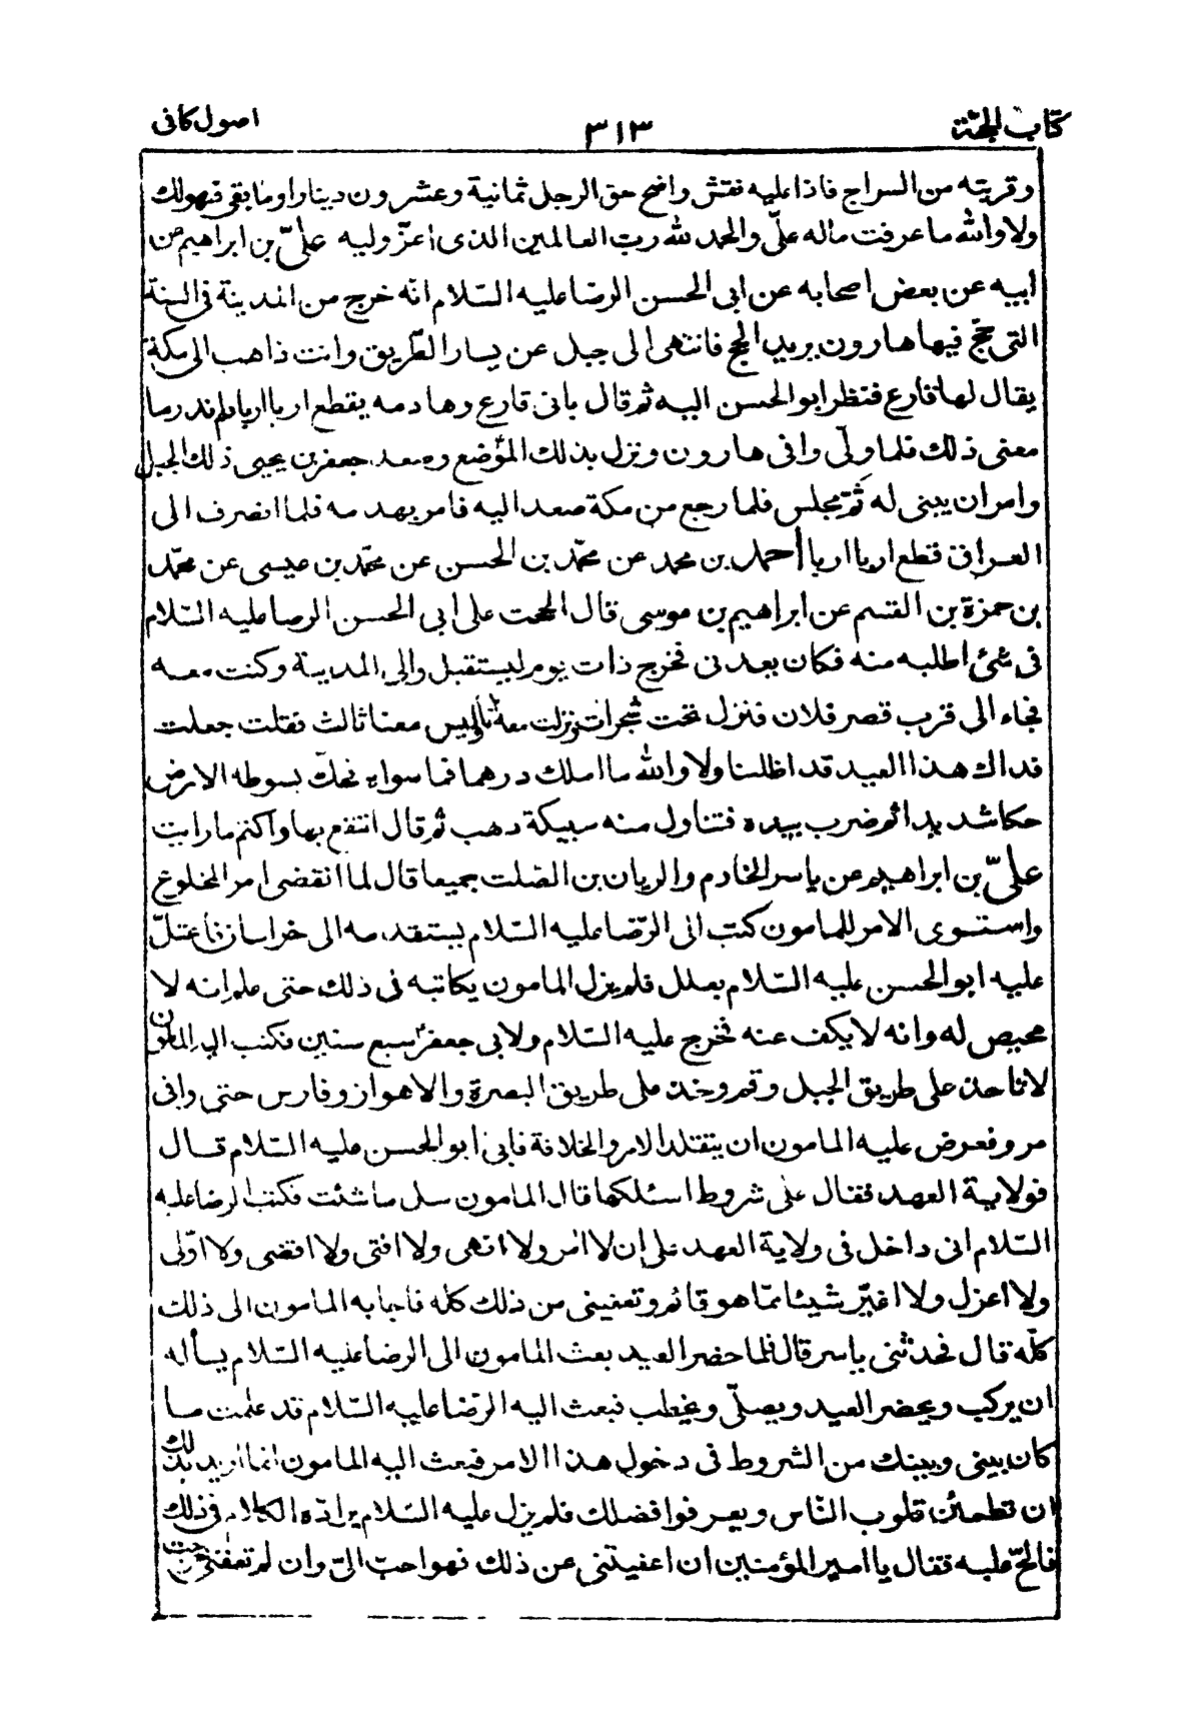 كتاب الحجّة
٣١٣
اصول كافى
و قربته من السراج فاذا عليه نقش واضح حق الرجل ثمانية وعشرون دينارا وما بقى فهولك
ولا والله ما عرفت ماله علىّ والحمد لله رب العالمين الذى اعزّ وليه علىّ بن ابراهيم عن
ابيه عن بعض اصحابه عن ابى الحسن الرضا عليه السّلام انّه خرج من المدينة فى السنة
التى حجّ فيها هارون يريد الحج فانتهى الى جبل عن يسار الطّريق وانت ذاهب الى مكة
يقال لها قارع فنظر ابو الحسن اليه ثم قال بانى قارع وهادمه يقطع اربا اربا فلم ندر ما
معنى ذلك فلما ولّى وافى هارون ونزل بذلك الموضع وصعد جعفر بن يحيى ذلك الجبل
وامر ان يبنى له ثَمّ مجلس فلما رجع من مكة صعد اليه فامر بهدمه فلما انصرف الى
العراق قطع اربا اربا أحمد بن محمد عن محمّد بن الحسن عن محمّد بن عيسى عن محمّد
بن حمزة بن القسم عن ابراهيم بن موسى قال الححت على ابى الحسن الرضا عليه السّلام
فى شئ اطلبه منه فكان يعدنى فخرج ذات يوم ليستقبل والى المدينة وكنت معه
فجاء الى قرب قصر فلان فنزل تحت شجرات ونزلت معه انا وليس معنا ثالث فقلت جعلت
فداك هذا العيد قد اظلنا ولا والله ما املك درهما فما سواه فحكّ بسوطه الارض
حكا شديدا ثم ضرب بيده فتناول منه سبيكة ذهب ثم قال انتفع بها واكتم ما رايت
علىّ بن ابراهيم عن ياسر الخادم والريان بن الصّلت جميعا قال لما انقضى امر المخلوع
واستوى الامر للمامون كتب الى الرّضا عليه السّلام يستقدمه الى خراسان فاعتلّ
عليه ابو الحسن عليه السّلام بعلل فلم يزل المامون يكاتبه فى ذلك حتى علم انه لا
محيص له وانه لا يكف عنه فخرج عليه السّلام ولابى جعفر سبع سنين فكتب اليه المامون
لا تاخذ على طريق الجبل وقم وخذ على طريق البصرة والاهواز وفارس حتى وافى
مرو فعرض عليه المامون ان يتقلد الامر والخلافة فابى ابو الحسن عليه السّلام قال
فولاية العهد فقال على شروط اسئلكها قال المامون سل ما شئت فكتب الرضا عليه
السّلام انى داخل فى ولاية العهد على ان لا امر ولا انهى ولا افتى ولا اقضى ولا اولّى
ولا اعزل ولا اغيّر شيئا ممّا هو قائم وتعفينى من ذلك كله فاجابه المامون الى ذلك
كلّه قال فحدثنى ياسر قال فلما حضر العيد بعث المامون الى الرضا عليه السّلام يسأله
ان يركب ويحضر العيد ويصلّى ويخطب فبعث اليه الرّضا عليه السّلام قد علمت ما
كان بينى وبينك من الشروط فى دخول هذا الامر فبعث اليه المامون انما اريد بذلك
ان تطمائن قلوب النّاس ويعرفوا فضلك فلم يزل عليه السّلام يرادّه الكلام فى ذلك
فالحّ عليه فقال يا امير المؤمنين ان اعفيتنى عن ذلك فهو احبّ الىّ وان لم تعفنى خرجت